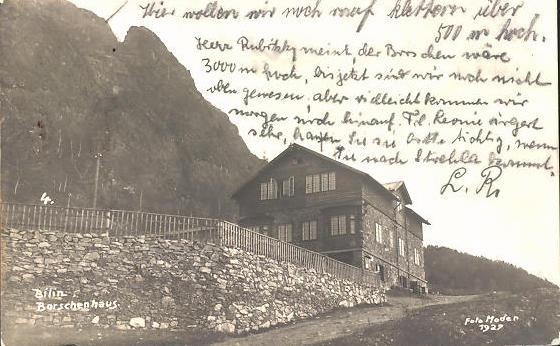 Hier wollen wir noch rauf klettern über
500 m hoch.
Herr Rubitzky meint, der Borschen wäre
3000 m hoch, bis jetzt sind wir noch nicht
oben gewesen, aber vielleicht kommen wir
morgen noch hinauf. Frl. Leonie ärgert
sehr, hauen Sie sie bitte tüchtig, wenn
Sie nach Strehla kommt.
L. R.
4.
Bilin
Borschenhaus
Foto Moder
1927